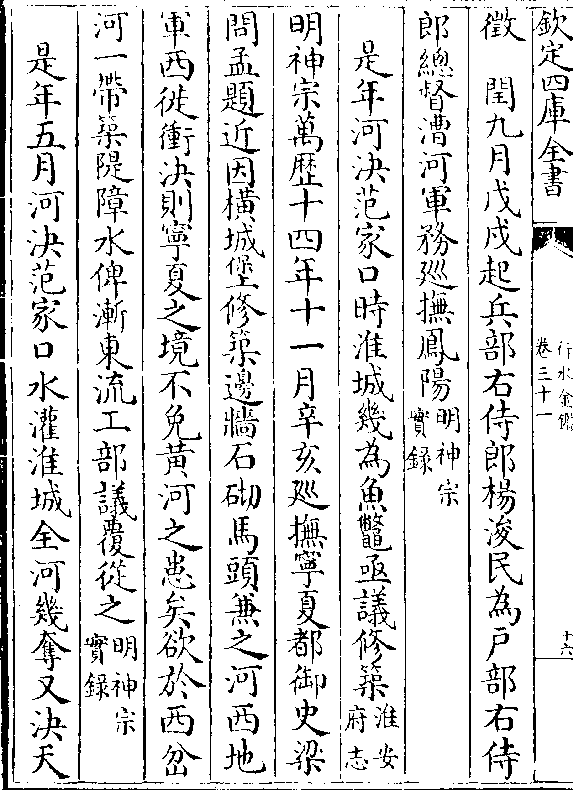 欽定四庫全書
行水金鑑
卷三十一
十六
徵　閏九月戊戌起兵部右侍郎楊浚民為戸部右侍
郎總督漕河軍務廵撫鳳陽明神宗實錄
是年河決范家口時淮城幾為魚鼈亟議修築淮安府志
明神宗萬歴十四年十一月辛亥廵撫寧夏都御史梁
問孟題近因横城堡修築邊牆石砌馬頭兼之河西地
軍西徙衝決則寧夏之境不免黃河之患矣欲於西岔
河一帶築隄障水俾漸東流工部議覆從之明神宗實錄
是年五月河決范家口水灌淮城全河幾奪又決天